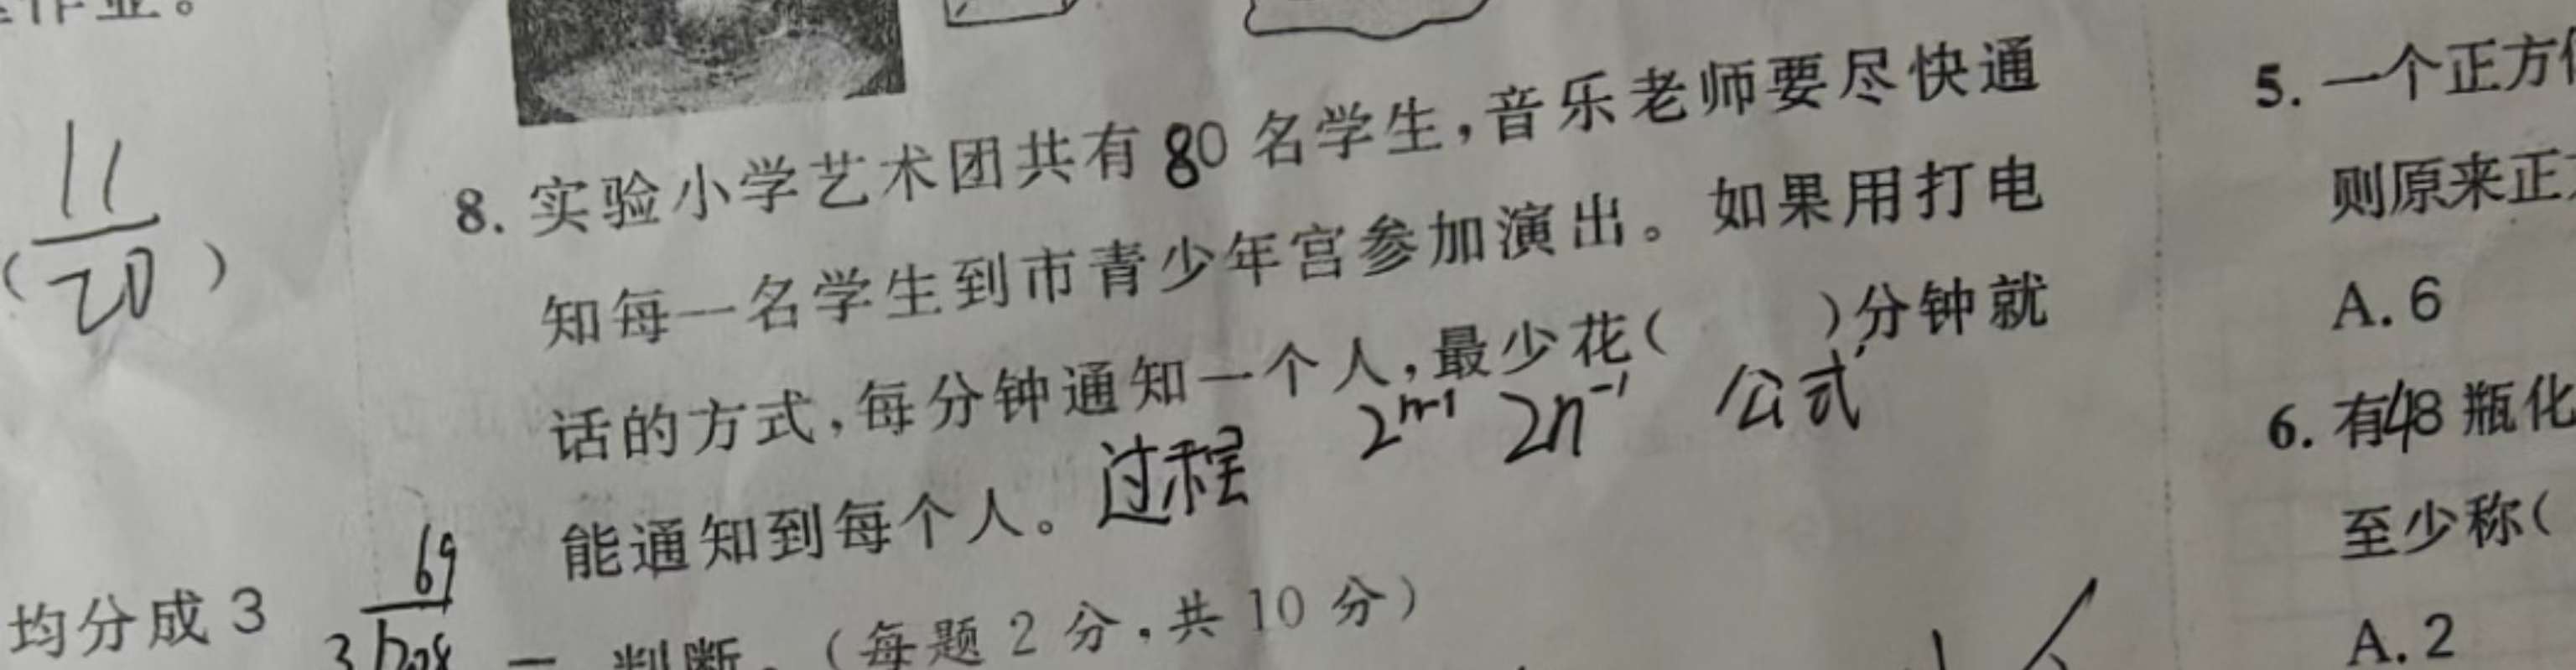 作业。
11
(20)
8. 实验小学艺术团共有80名学生,音乐老师要尽快通
知每一名学生到市青少年宫参加演出。如果用打电
话的方式,每分钟通知一个人,最少花( )分钟就
能通知到每个人。过程 2ⁿ⁻¹ 2n⁻¹ 公式
均分成3
69
判断。(每题2分,共10分)
5. 一个正方
则原来正
A. 6
6. 有48瓶化
至少称(
A. 2